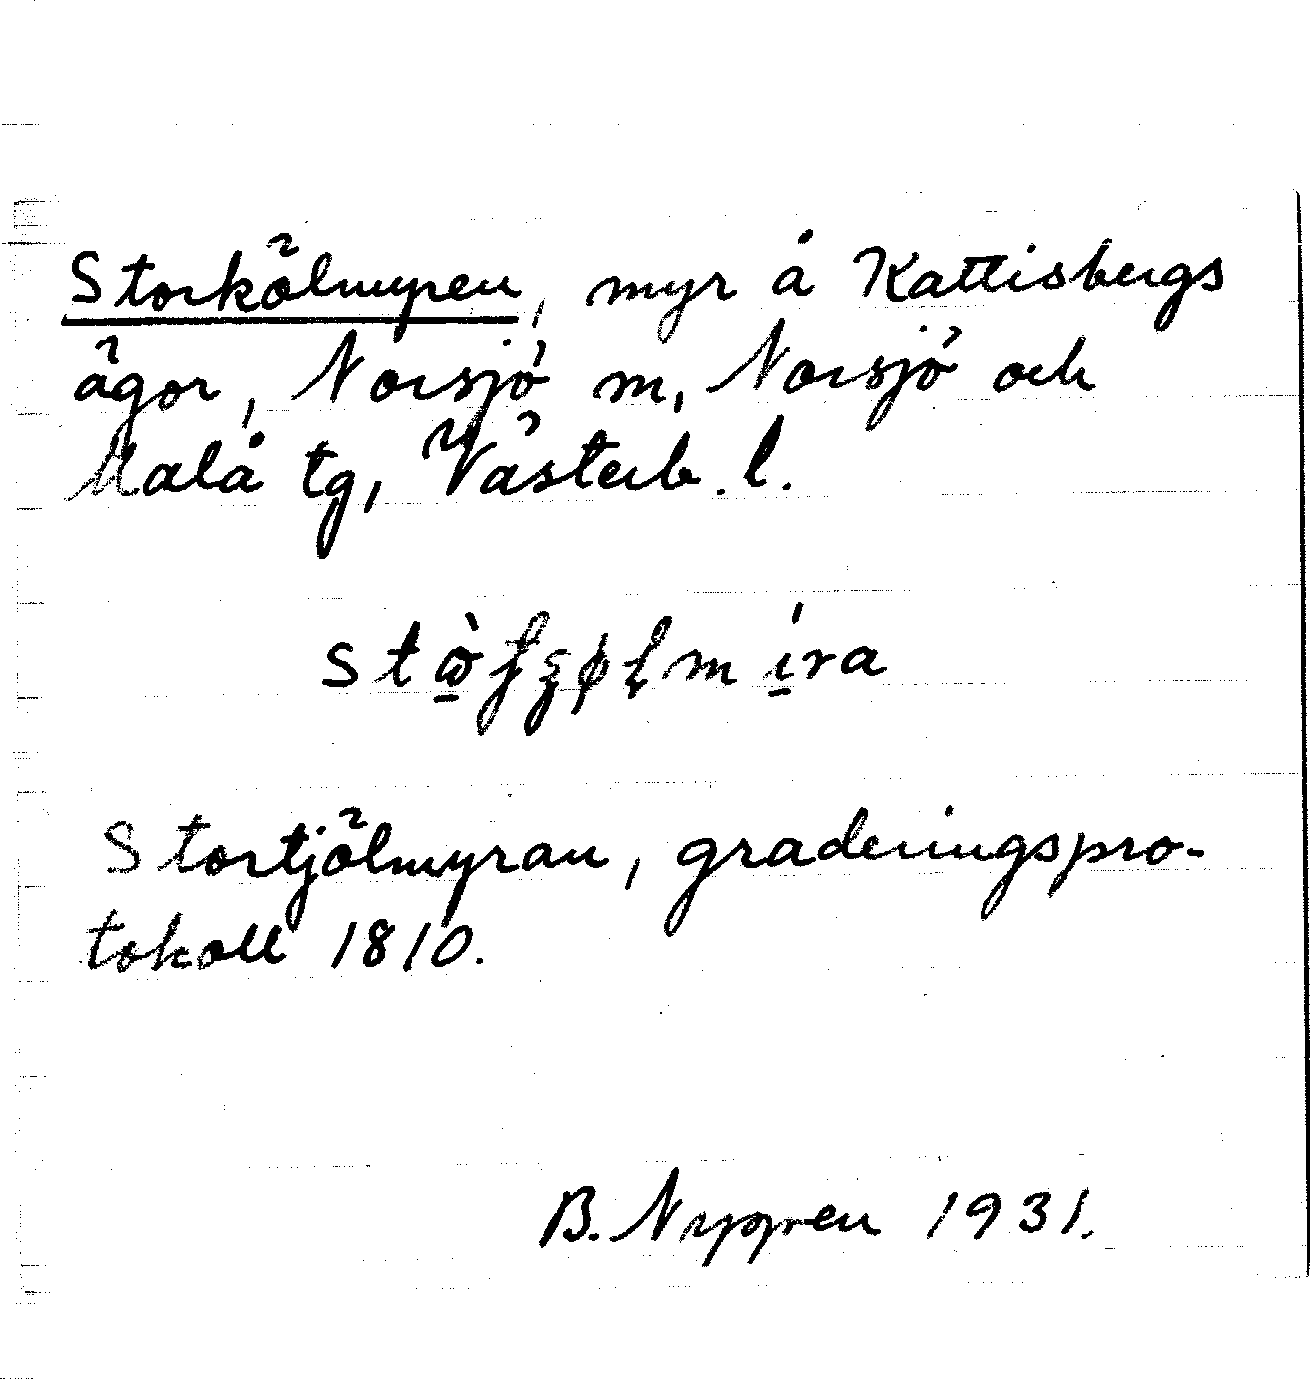 Storkölmyren, myr å Kattisbergs
ägor, Norsjö sn, Norsjö och
Malå tg, Västerb. l.
Stortjölmyran, graderingspro-
tokoll 1810.
B. Nygren 1931.